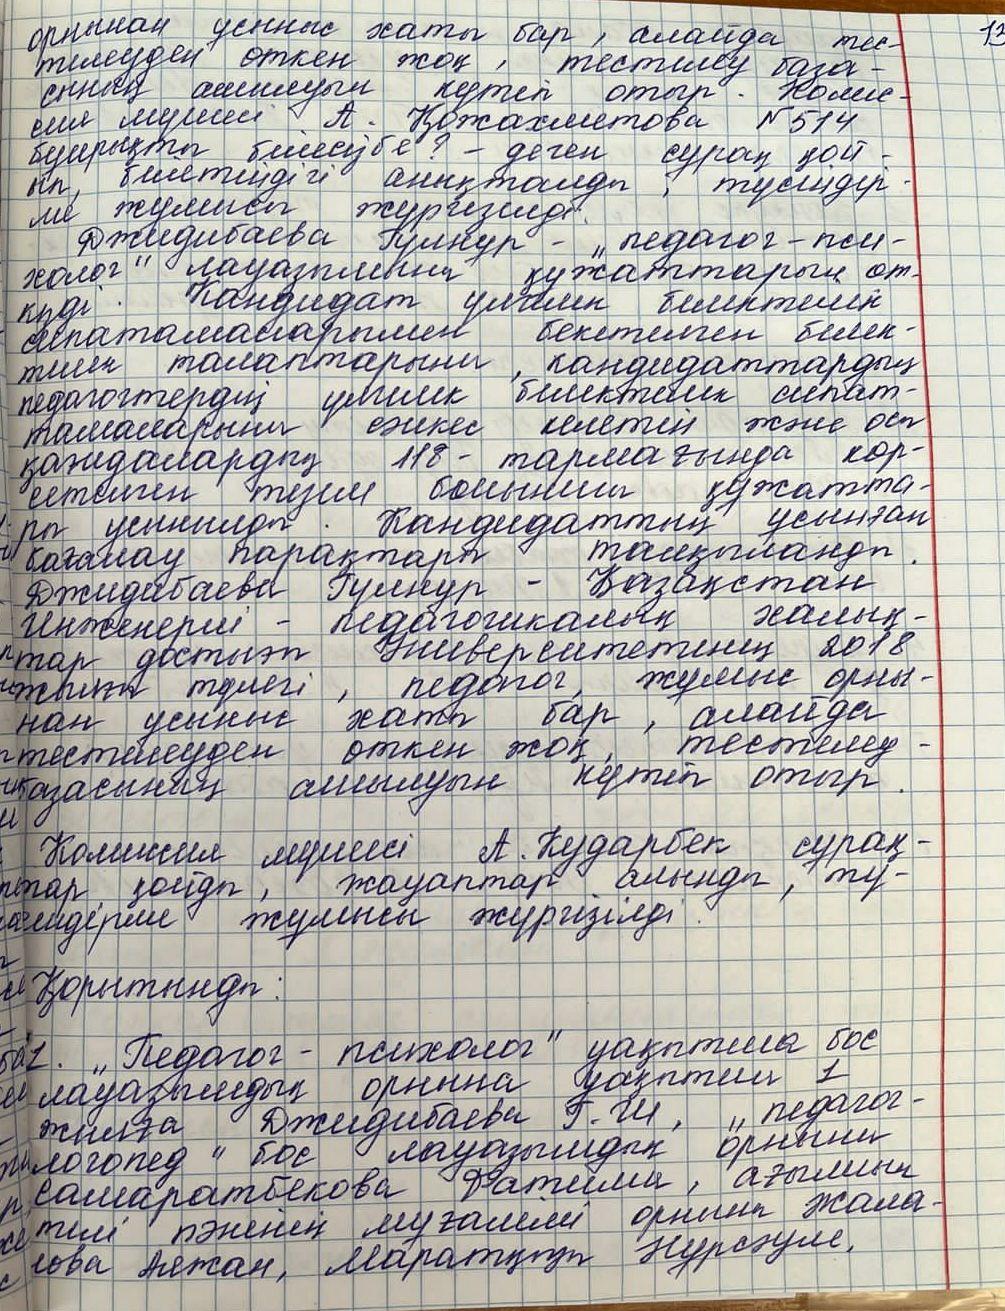 13
орнынан ұсыныс хаты бар, алайда тес-
тілеуден өткен жоқ, тестілеу база-
сының ашылуын күтіп отыр. Комис-
сия мүшесі А. Қожахметова №514
бұйрықты білесіз бе? – деген сұрақ қой-
ып, білетіндігі анықталды, түсіндір-
ме жұмысы жүргізілді.
Джидибаева Гулнур – „педагог-пси-
холог" лауазымына құжаттарын өт-
кізді. Кандидат үлгілік біліктілік
сипатамаларымен бекітілген білік-
тілік талаптарына, кандидаттардың
педагогтердің үлгілік біліктілік сипат-
тамаларына сәйкес келетін және осы
қағидалардың 118-тармағында көр-
сетілген тізім бойынша құжатта-
ры ұсынылды. Кандидаттың ұсынған
бағалау парақтары талқыланды.
Джидибаева Гулнур – Қазақстан
Инженерлі-педагогикалық халық-
тар достығы Университетінің 2018
жылғы түлегі, педагог, жұмыс орны-
нан ұсыныс хаты бар, алайда
тестілеуден өткен жоқ, тестілеу -
базасының ашылуын күтіп отыр.
Комиссия мүшесі А. Құдарбек сұрақ-
тар қойды, жауаптар алынды, тү-
сіндірме жұмысы жүргізілді.
Қорытынды:
1. „Педагог-психолог" уақытша бос
лауазымдық орнына уақытша 1
жылға Джидибаева Г.Ш, „педагог-
логопед" бос лауазымдық орнына
Самаратбекова Фатима, ағылшын
тілі пәнінің мұғалімі орнына Жала-
лова Аяжан, Маратқызы Нұрсәуле,